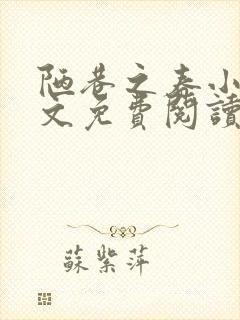 陋巷之春小
文免費閱讀
蘇紫萍